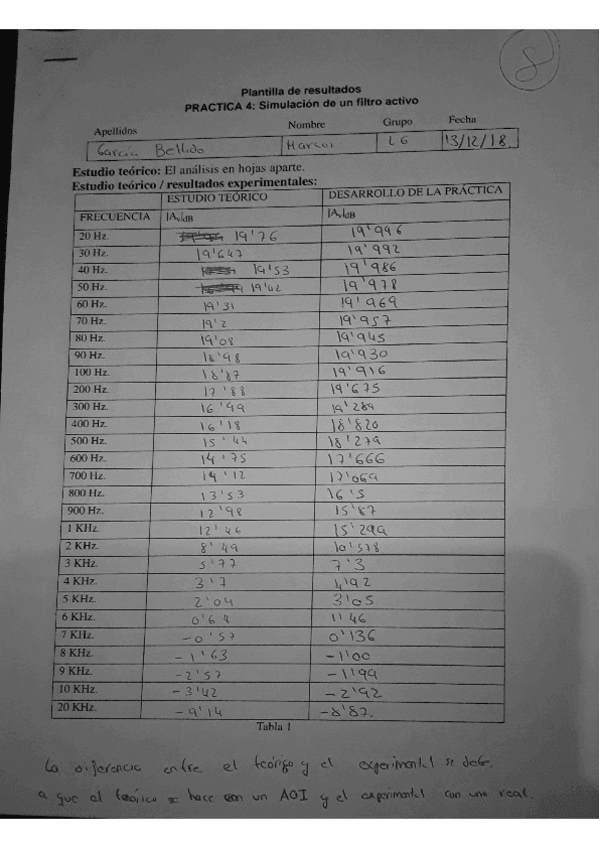 8
Plantilla de resultados
PRACTICA 4: Simulación de un filtro activo
Apellidos Nombre Grupo Fecha
García Bellido Marcos L6 13/12/18.
Estudio teórico: El análisis en hojas aparte.
Estudio teórico / resultados experimentales:
ESTUDIO TEÓRICO DESARROLLO DE LA PRÁCTICA
FRECUENCIA |Av|dB |Av|dB
20 Hz. 19'76 19'996
30 Hz. 19'647 19'992
40 Hz. 19'53 19'986
50 Hz. 19'42 19'978
60 Hz. 19'31 19'969
70 Hz. 19'2 19'957
80 Hz. 19'08 19'945
90 Hz. 18'98 19'930
100 Hz. 18'87 19'916
200 Hz. 17'88 19'675
300 Hz. 16'99 19'289
400 Hz. 16'18 18'820
500 Hz. 15'44 18'279
600 Hz. 14'75 17'666
700 Hz. 14'12 17'069
800 Hz. 13'53 16'5
900 Hz. 12'98 15'87
1 KHz. 12'46 15'299
2 KHz. 8'49 10'578
3 KHz. 5'77 7'3
4 KHz. 3'7 4'92
5 KHz. 2'04 3'05
6 KHz. 0'64 1'46
7 KHz. -0'57 0'136
8 KHz. -1'63 -1'00
9 KHz. -2'57 -1'99
10 KHz. -3'42 -2'92
20 KHz. -9'14 -8'87.
Tabla 1
La diferencia entre el teórigo y el experimental se debe
a que el teórico se hace con un AOI y el experimental con uno real.